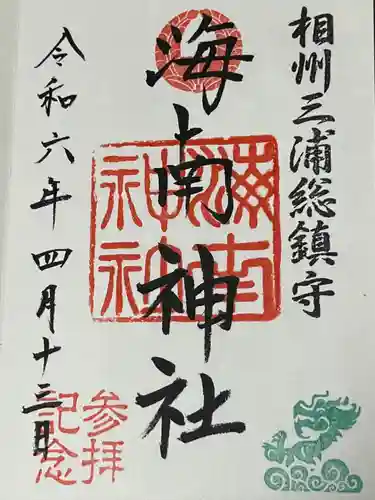 相州三浦総鎮守
海南神社
海南神社
令和六年四月十三日
参拝記念